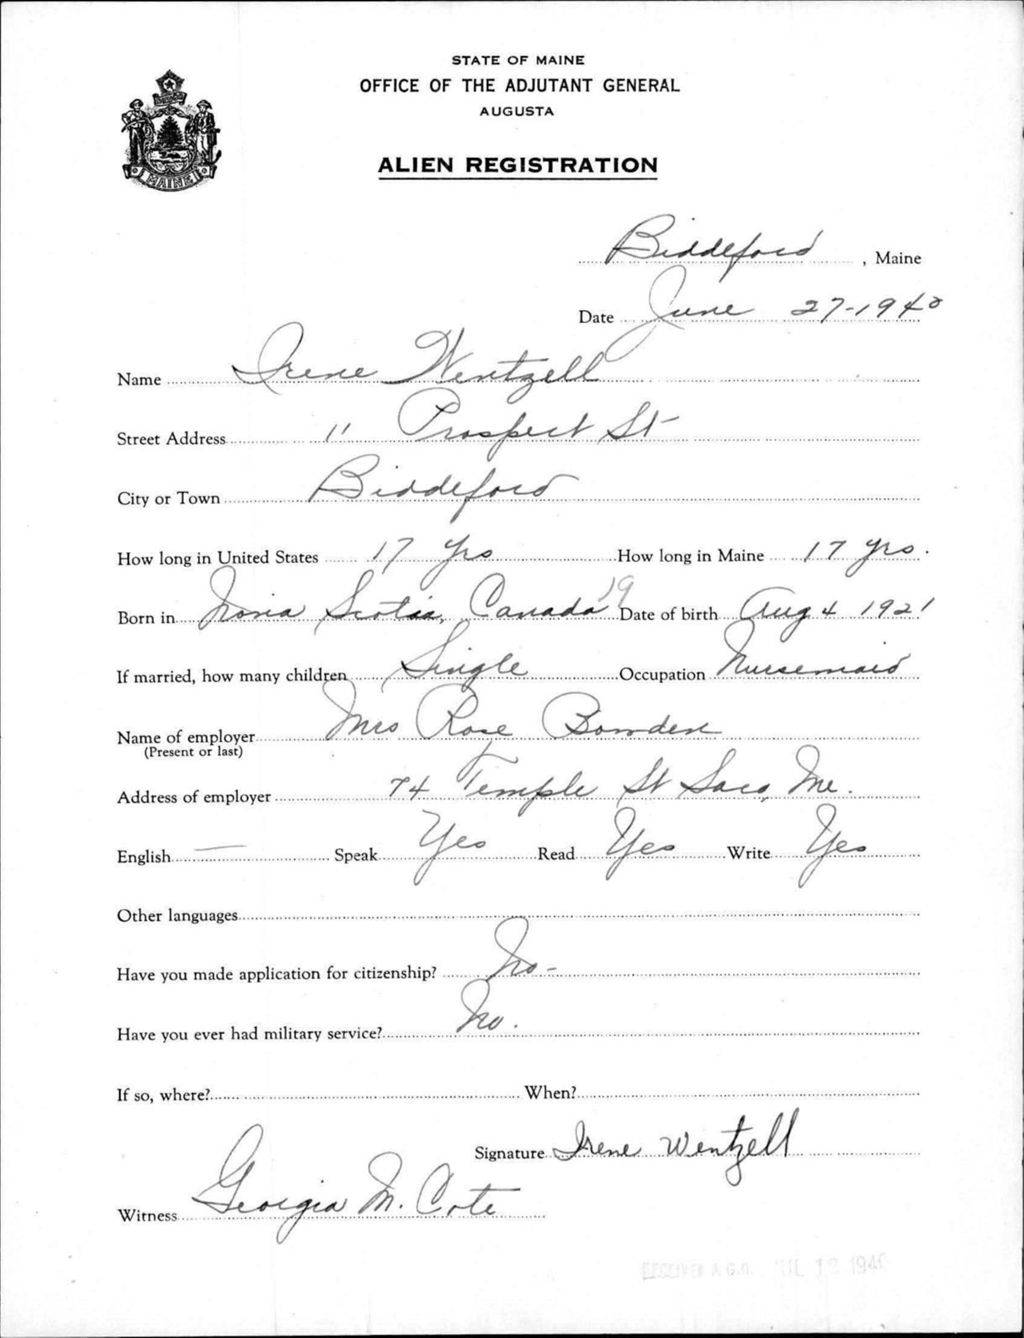 STATE OF MAINE
OFFICE OF THE ADJUTANT GENERAL
AUGUSTA
ALIEN REGISTRATION
MAINE
Biddeford, Maine
Date June 27-1940
Name Irene Wentzell
Street Address 11 Prospect St
City or Town Biddeford
How long in United States 17 yrs How long in Maine 17 yrs.
19
Born in Nova Scotia, Canada Date of birth Aug 4 1921
If married, how many children Single Occupation Nursemaid
Name of employer Mrs Rose Bowden
(Present or last)
Address of employer 74 Temple St Saco, Me.
English — Speak Yes Read Yes Write Yes
Other languages
Have you made application for citizenship? No-
Have you ever had military service? No.
If so, where? When?
Signature Irene Wentzell
Witness Georgia M. Cote
RECEIVED A.G.O. JUL 12 1940